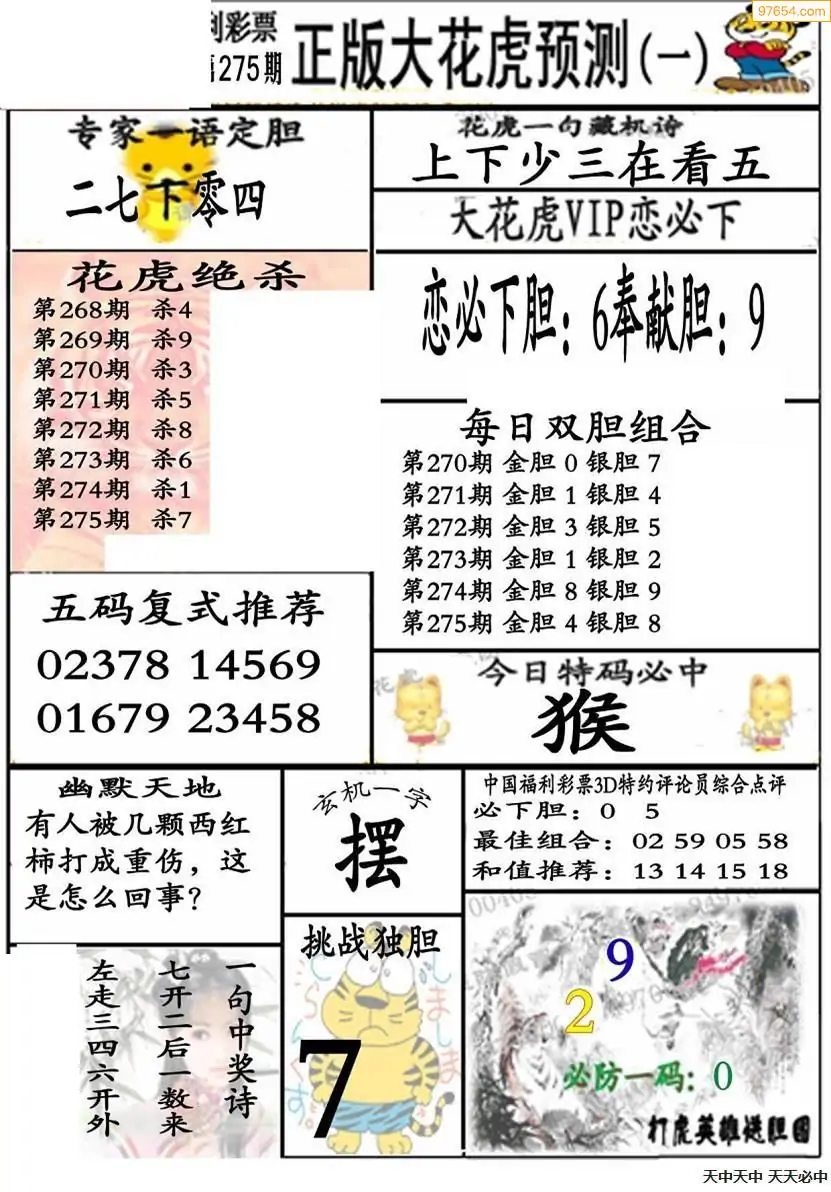 97654.com
利彩票
275期
正版大花虎预测(一)
专家一语定胆
二七下零四
花虎一句藏机诗
上下少三在看五
大花虎VIP恋必下
恋必下胆：6奉献胆：9
花虎绝杀
第268期 杀4
第269期 杀9
第270期 杀3
第271期 杀5
第272期 杀8
第273期 杀6
第274期 杀1
第275期 杀7
每日双胆组合
第270期 金胆 0 银胆 7
第271期 金胆 1 银胆 4
第272期 金胆 3 银胆 5
第273期 金胆 1 银胆 2
第274期 金胆 8 银胆 9
第275期 金胆 4 银胆 8
五码复式推荐
02378 14569
01679 23458
今日特码必中
猴
幽默天地
有人被几颗西红
柿打成重伤，这
是怎么回事？
玄机一字
摆
中国福利彩票3D特约评论员综合点评
必下胆：0 5
最佳组合：02 59 05 58
和值推荐：13 14 15 18
一句中奖诗
七开二后一数来
左走三四六开外
挑战独胆
7
9
2
必防一码：0
打虎英雄送胆图
天中天中 天天必中